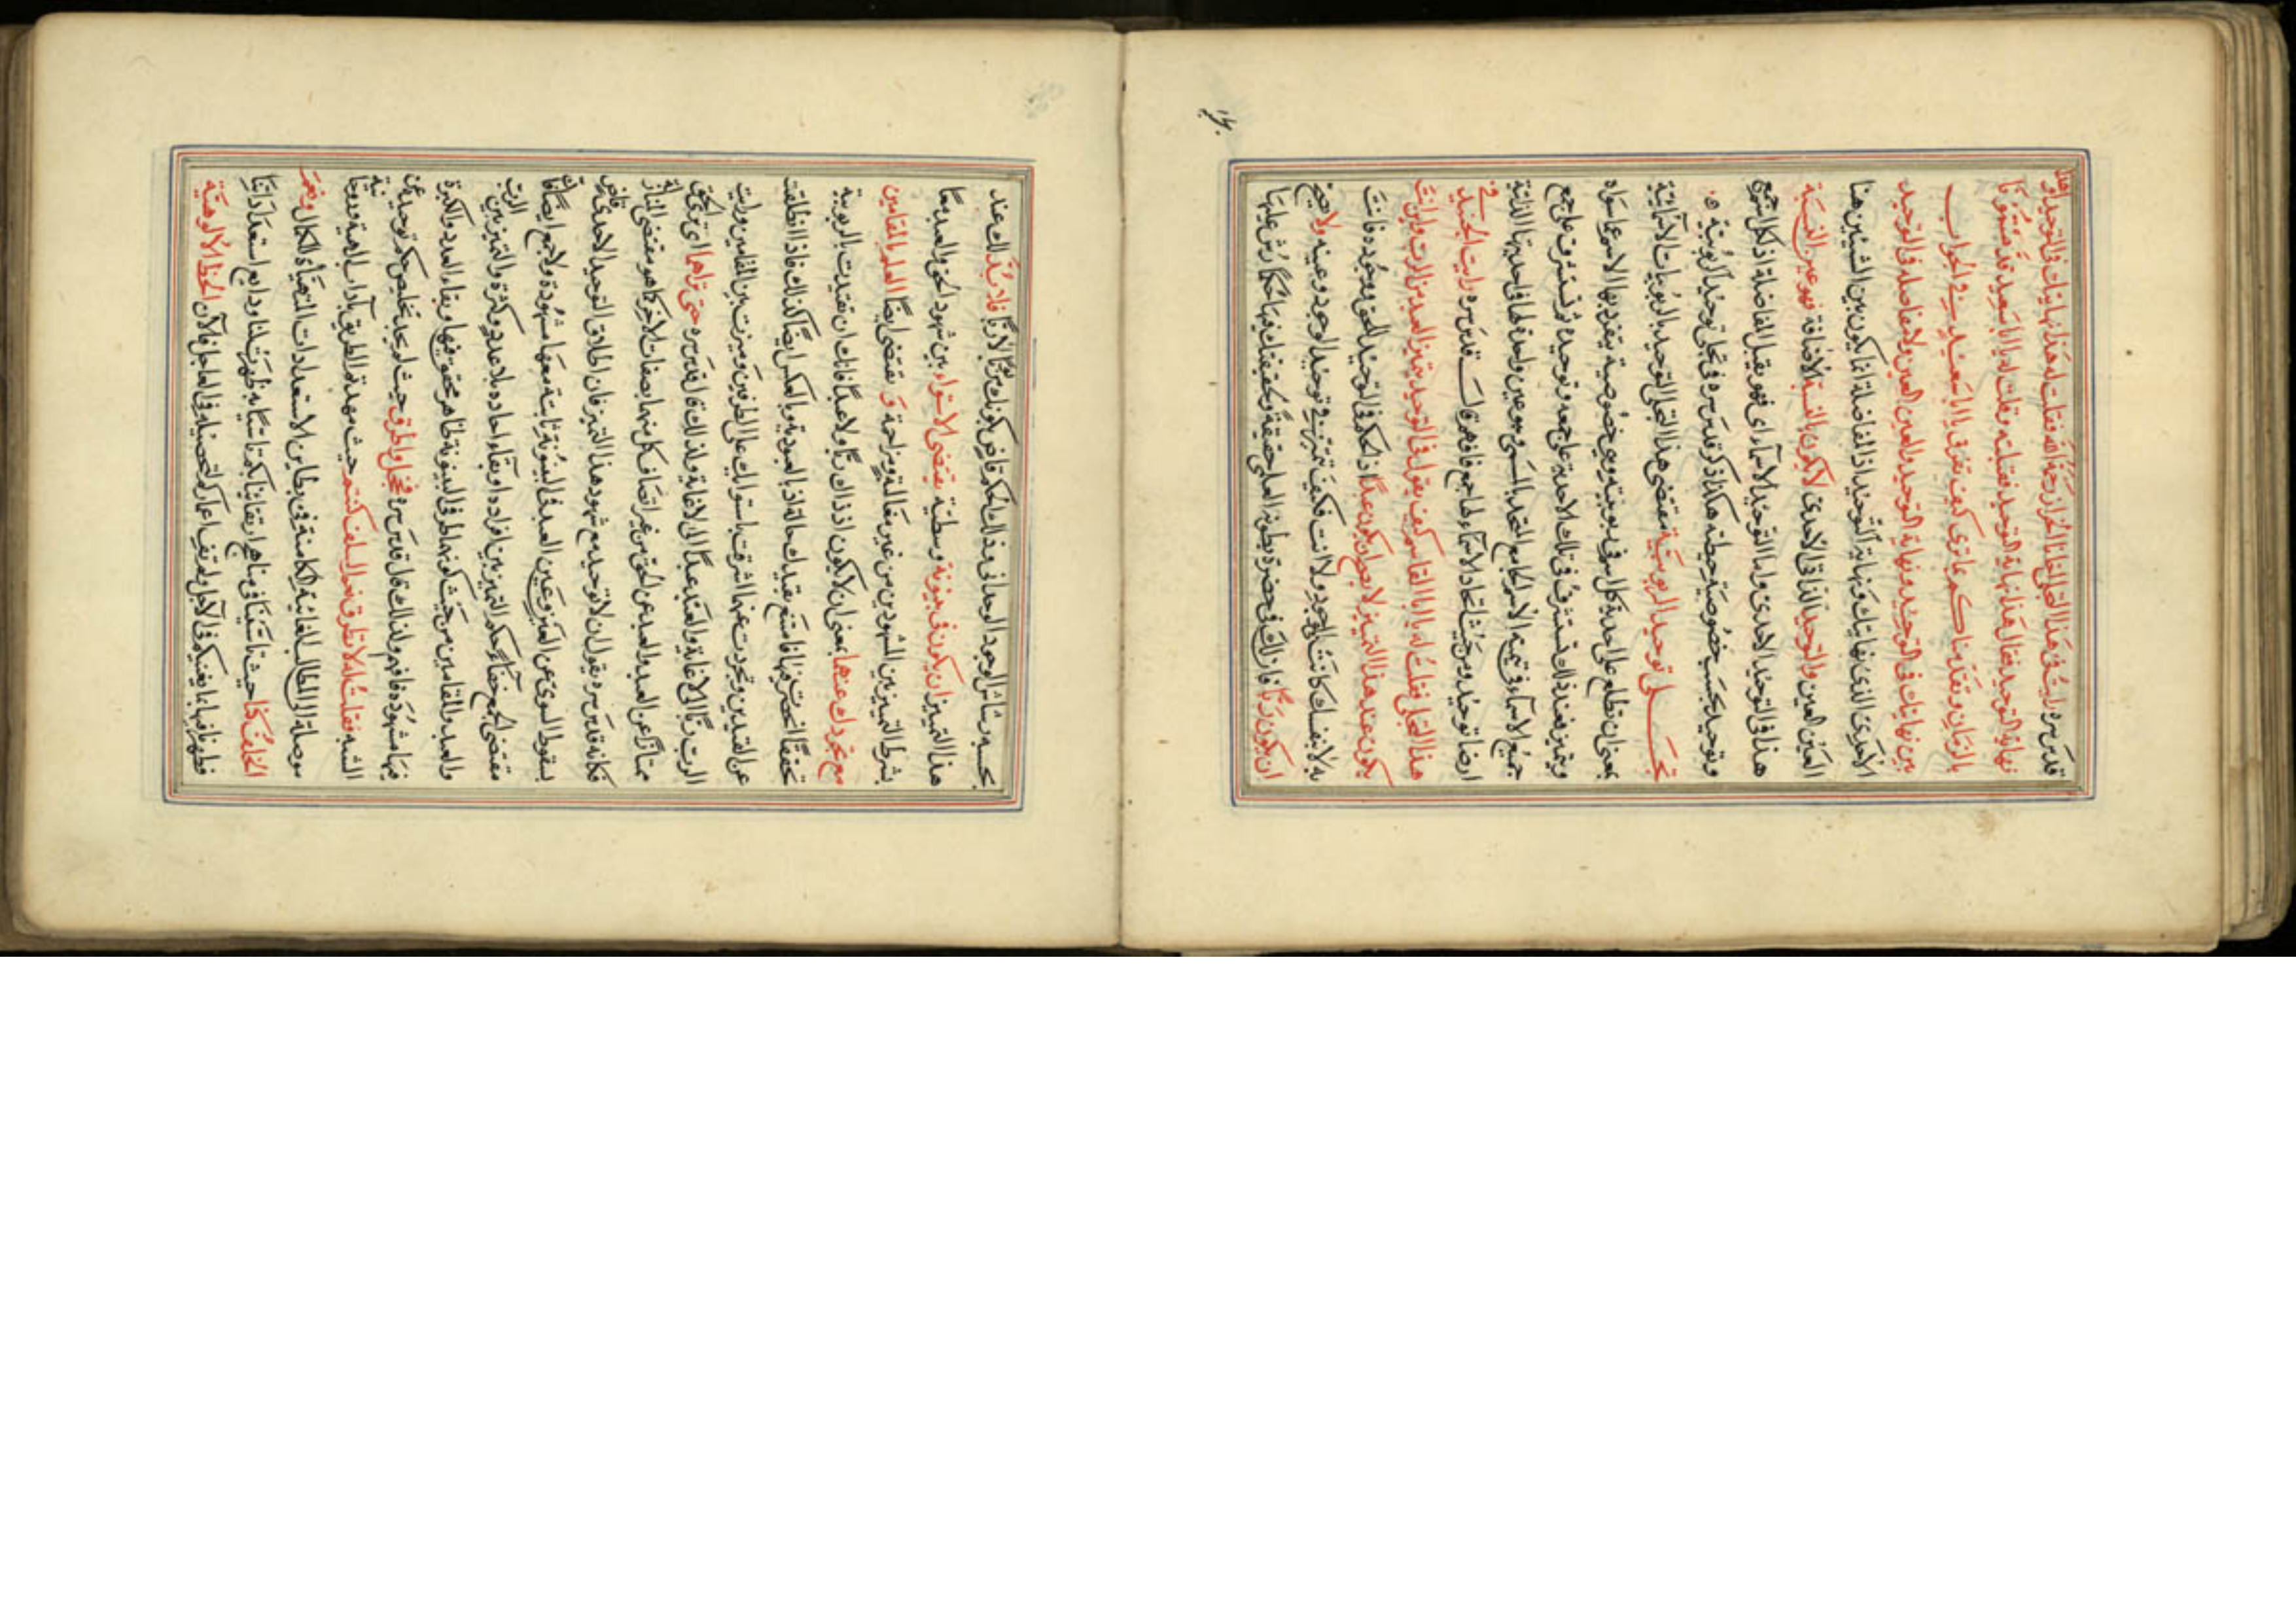 قدس سره رايت في هذا التجلي اخانا الخراز رحمه الله فقلت له هذا نهايتك في التوحيد او هذا
نهاية التوحيد فقال هذا نهاية التوحيد فقبلته وقلت له يا ابا سعيد قدمتمونا
بالزمان وتقدمناكم بما ترى كيف تفرق يا ابا سعيد في الجواب
بين نهايتك في التوحيد ونهاية التوحيد والعين العين ولا مفاضلة في التوحيد
نهايتك ونهاية التوحيد اذ المفاضلة انما تكون بين الشيئين هنا
العين العين والتوحيد الذاتي الاحدي لا يكون بالنسبة والاضافة فهو عين النسبة
هذا في التوحيد الاحدي واما التوحيد الاسمائي فهو يقبل المفاضلة اذ لكل اسم جمع
وتوحيد بحسب خصوصية حيطته هكذا ذكر قدس سره في تجلي توحيد الربوبية
تجلي توحيد الربوبية مقتضى هذا التجلي التوحيد بالربوبيات الاسمائية
بمعنى ان تطلع على احدية كل اسم في ربوبيته وعلى خصوصية ينفرد بها الاسم عما سواه
ويتميز فعند ذلك تستشرف في تلك الاحدية على جمعه وتوحيده ثم تستشرف على جمع
جميع الاسماء في الاسم الجامع المتحد بالمسمى وهو عين واحدة لها في احديتها الذاتية
ايضا توحيد ومن حيث اتحاد الاسماء بها جمع فافهم قال قدس سره رايت الجنيد في
هذا التجلي فقلت له يا ابا القاسم كيف تقول في التوحيد يتميز العبد من الرب واين انت
تكون عند هذا التمييز لا يصح ان تكون عبدا اذ لا حكم في التوحيد الا للحق ووجوده فانت
به لا بنفسك كانت الوجود ولا انت فكيف تتميز في توحيد الوجود وعينه ولا يصح
ان تكون ربا فان لك في حضرة بطون العلم حقيقة ولحقيقتك فيها احكام ترش عليها
بحسبه رشاش الوجود الوحداني وذلك الحكم قاض بكونك مربوبا لا ربا فلا بد لك عند
هذا التمييز ان تكون في بينونة وسطية تقتضي الاستواء بين شهود الحق والعبد معا
بشرط التمييز بين الشهودين من غير مغالبة ومزاحمة وتقتضي ايضا العلم بالمقامين
مع تجردك عنهما بمعنى ان لا يكون اذ ذاك ربا ولا عبدا فانك ان تقيدت بالربوبية
تحققا انحصرت فيها فامتنع تقيدك حالتئذ بالعبودية وبالعكس ايضا كذلك فاذا انطلقت
عن القيدين وتجردت عنهما اشرفت باستوائك على الطرفين وميزت بين المقامين ورايت
الرب ربا الى لا غاية والعبد عبدا الى لا غاية ولذلك قال قدس سره حتى تراهما اي ترى الحق
ممتازا عن العبد والعبد عن الحق من غير اتصاف كل منهما بصفات الاخر كما هو مقتضى المنازلة
فكانه قدس سره يقول ان لا توحيد مع شهود هذا التمييز فان اطلاق التوحيد الاحدي قاض
بسقوط السوى عن العين وعين العبد في البينونة ثابتة معها مشهودة ولا جمع ايضا فان
مقتضى الجمع خفاء حكم التمييز بين افراده او بقاء احاده بلا عدد وكثرة والتميز بين الرب
والعبد والمقامين من حيث كونهما طرفي البينونة ظاهر محقق فيها وبقاء العدد والكثرة
فيها مشهود فافهم ولذلك قال قدس سره فخجل واطرق حيث لم يجد تخليص حكم توحيده عن
الشبه فقلت له لا تطرق نعم السلف كنتم حيث مهدتم الطريق باداب الهية وروحانية
موصلة الى المطالب الغائية الكامنة في بطاين الاستعدادات المتهيأة للكمال ونعم
الخلف كنا حيث في مناهج ارتقائنا بكم تاسيا به ظهرت لنا ودايع استعداداتنا
فظفرنا فيها بما يعينكم في الآجل ولم تف اعماركم لتحصيله في العاجل فالآن الحظ الالوهية